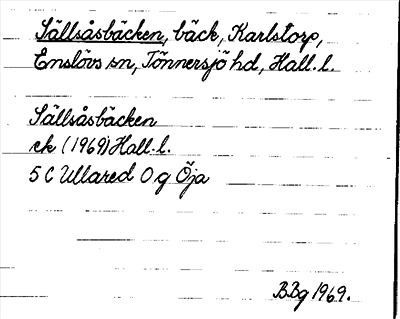 Sällsåsbäcken, bäck, Karlstorp,
Enslövs sn, Tönnersjö hd, Hall. l.
Sällsåsbäcken
ek (1969) Hall. l.
5 C Ullared 0 g Öja
BBg 1969.